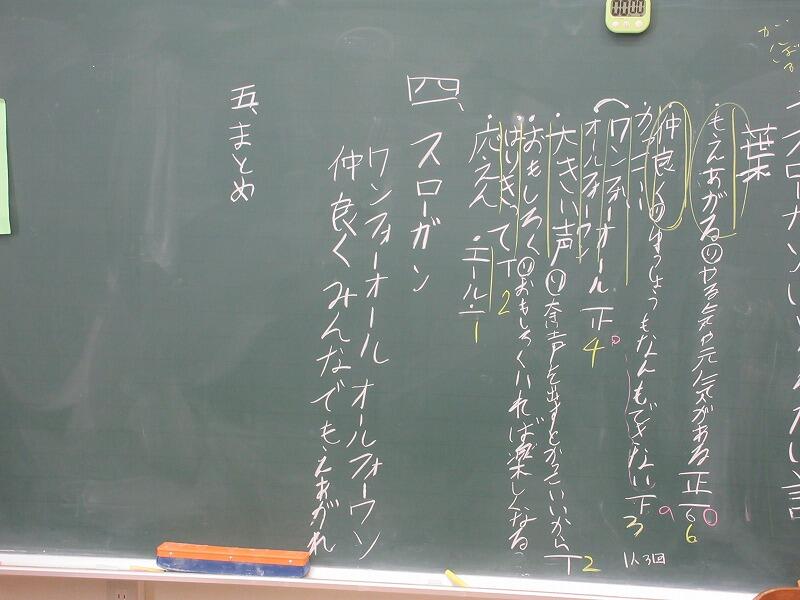 スローガンに
たい言
葉
・もえあがる(り)やる気や元気がある 正一 6
6
・仲良く(り)
もなんもできない 下
3
1人3回
(ワンフォーオール
オールフォーワン 正
4
・大きい声(り)
声を出すとかっこいいから 丁
2
・おもしろく(り)おもしろくいれば楽しくなる
・はりきって 丁
2
・応えん・エール・一
1
四、スローガン
ワンフォーオール オールフォーワン
仲良くみんなでもえあがれ
五、まとめ